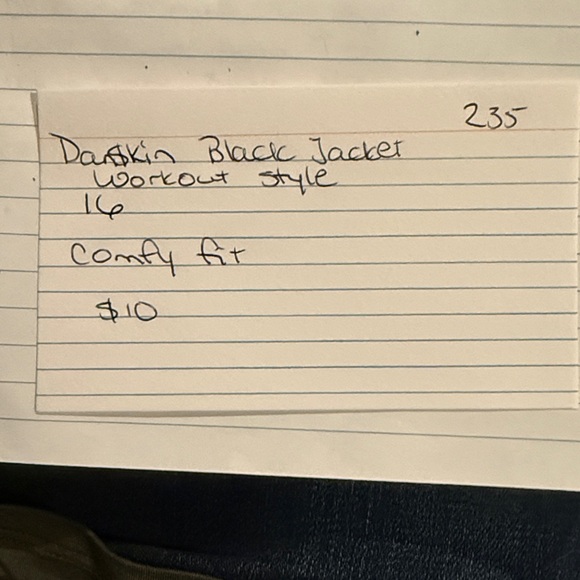 235
Danskin Black Jacket
Workout style
16
Comfy fit
$10